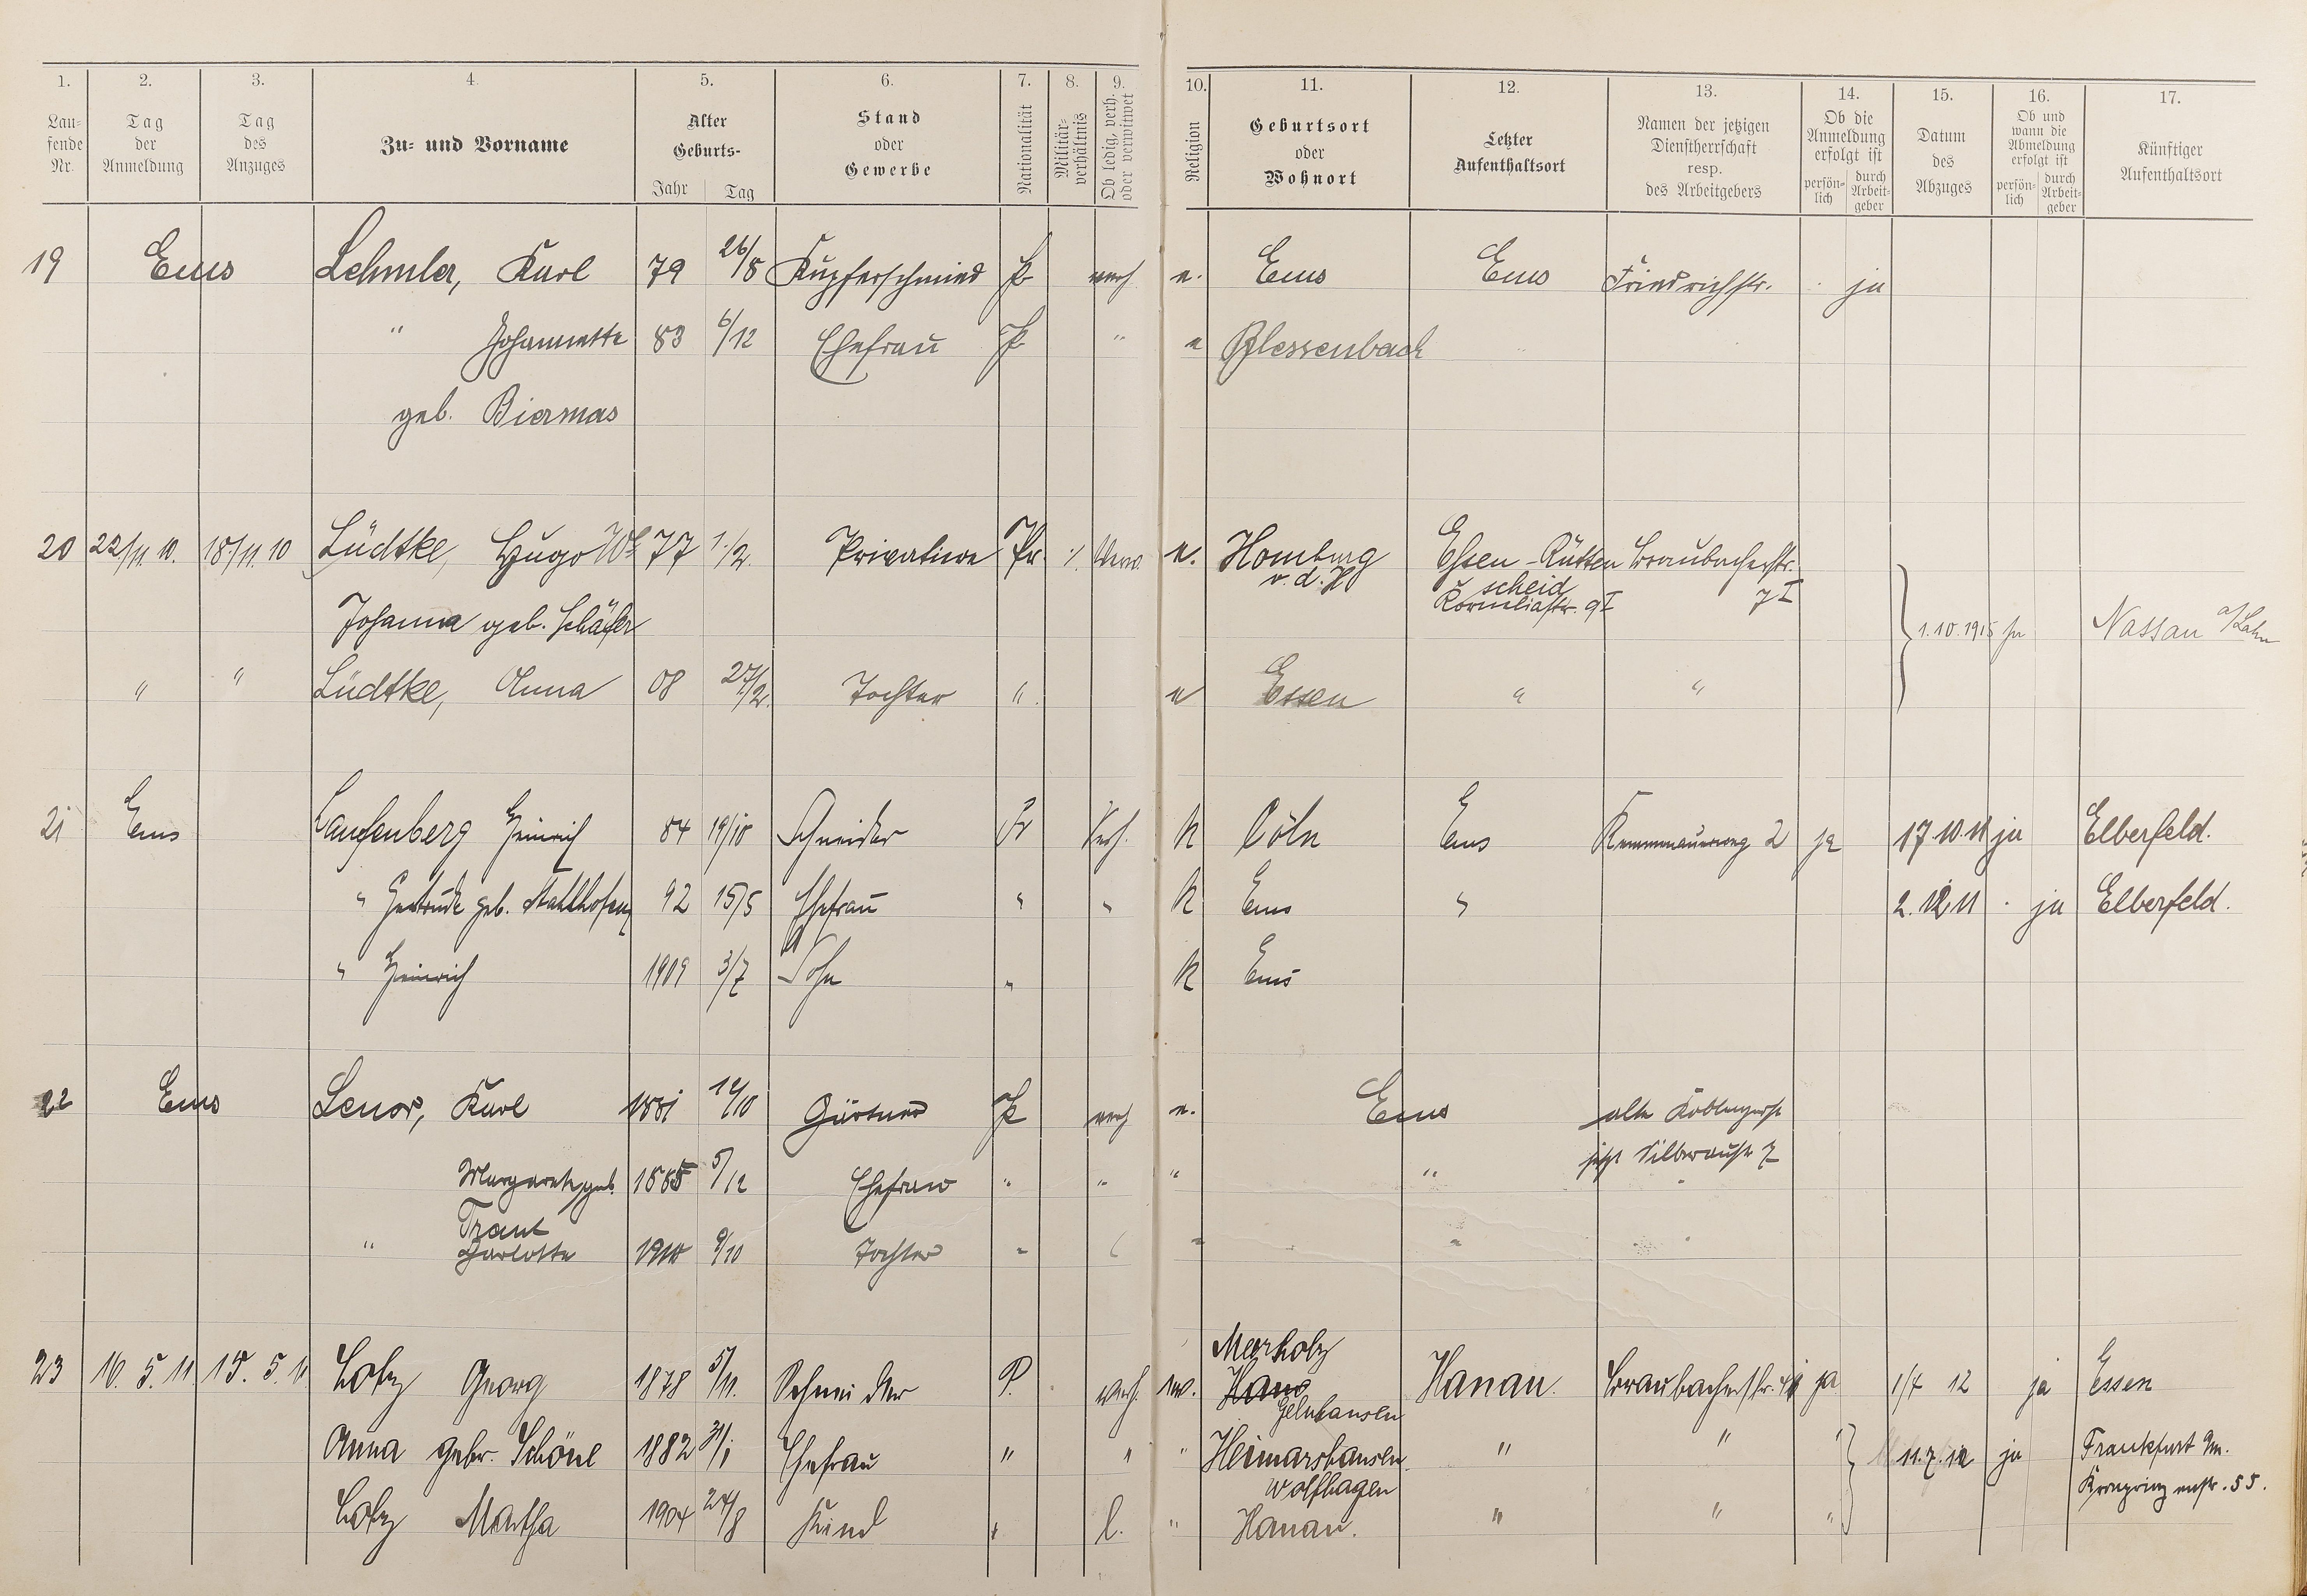 1. 2. 3. 4. 5. 6. 7. 8. 9. 10. 11. 12. 13. 14. 15. 16. 17.
Laufende Nr. Tag der Anmeldung Tag des Anzuges Zu- und Vorname Alter Geburts- Jahr Tag Stand oder Gewerbe Nationalität Militärverhältnis Ob ledig, verh. oder verwitwet Religion Geburtsort oder Wohnort Letzter Aufenthaltsort Namen der jetzigen Dienstherrschaft resp. des Arbeitgebers Ob die Anmeldung erfolgt ist persönlich durch Arbeitgeber Datum des Abzuges Ob und wann die Abmeldung erfolgt ist persönlich durch Arbeitgeber Künftiger Aufenthaltsort
19 Ems Lehmler, Karl 79 26/8 Kupferschmied P verh e. Ems Ems Friedrichstr. ja
" Johannette 83 6/12 Ehefrau P " e Blessenbach
geb. Biermas
20 22/11.10. 18./11.10 Lüdtke, Hugo 77 1./2. Privatiere Pr. ./. Verw. e. Homburg Essen-Rütten Braubacherstr.
v.d.H scheid 7 I
Johanna geb. Schäfer Korneliastr. 9 I
1.10.1915 ja Nassau a/Lahn
" " Lüdtke, Anna 08 27/2. Tochter " e Essen " "
21 Ems Laufenberg Heinrich 84 19/10 Schneider Pr Verh. K Cöln Ems Kemmenauerweg 2 ja 17.10.11 ja Elberfeld.
" Gertrude geb. Stahlhofen 92 15/5 Ehefrau " " K Ems " 2.12.11 ja Elberfeld.
" Heinrich 1909 3/7 Sohn " K Ems
22 Ems Lenor, Karl 1881 14/10 Gärtner P verh e. Ems alte Koblenzerstr
jetzt Silberaustr 7
Margarete geb. 1885 5/12 Ehefrau " " " "
Traut
" Charlotte 1910 9/10 Tochter " " "
Meerholz
23 16.5.11. 15.5.11 Lotz Georg 1878 5/11. Schneider P. verh. ev. Hanau Hanau. Braubacherstr. ja 1/4 12 ja Essen
Gelnhausen
Anna gebr. Schöne 1882 31/1 Ehefrau " " " Heimarshausen " " " 11.7.12 ja Frankfurt M.
Wolfhagen Kronprinzenstr. 55.
Lotz Martha 1904 24/8 Kind " l. " Hanau. " " "